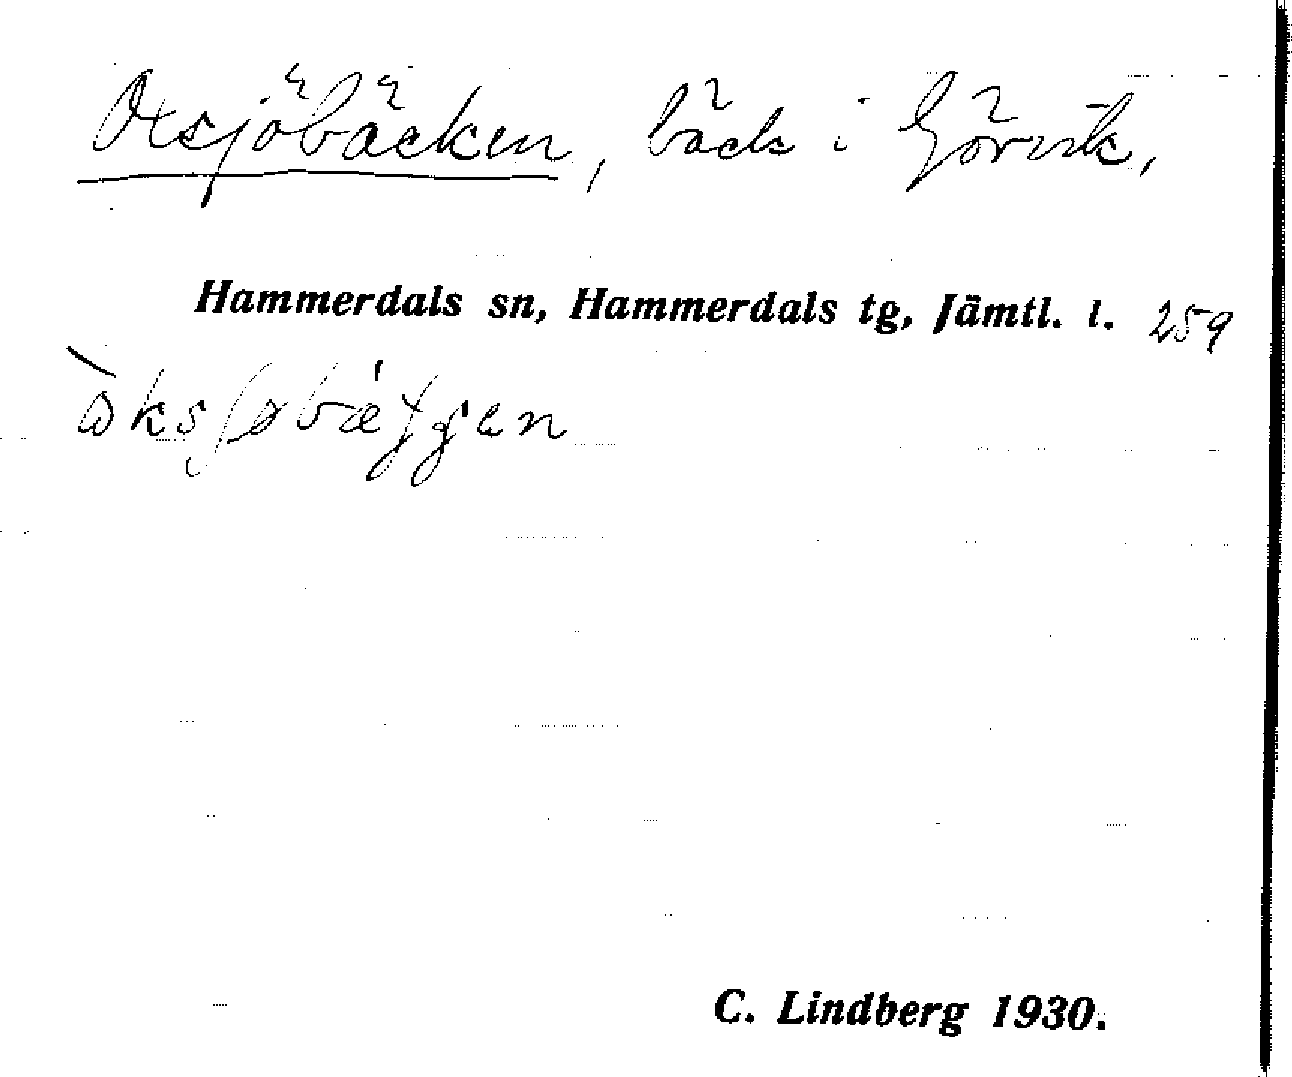 Oxsjöbäcken, bäck i Görvik,
Hammerdals sn, Hammerdals tg, Jämtl. l. 259
C. Lindberg 1930.